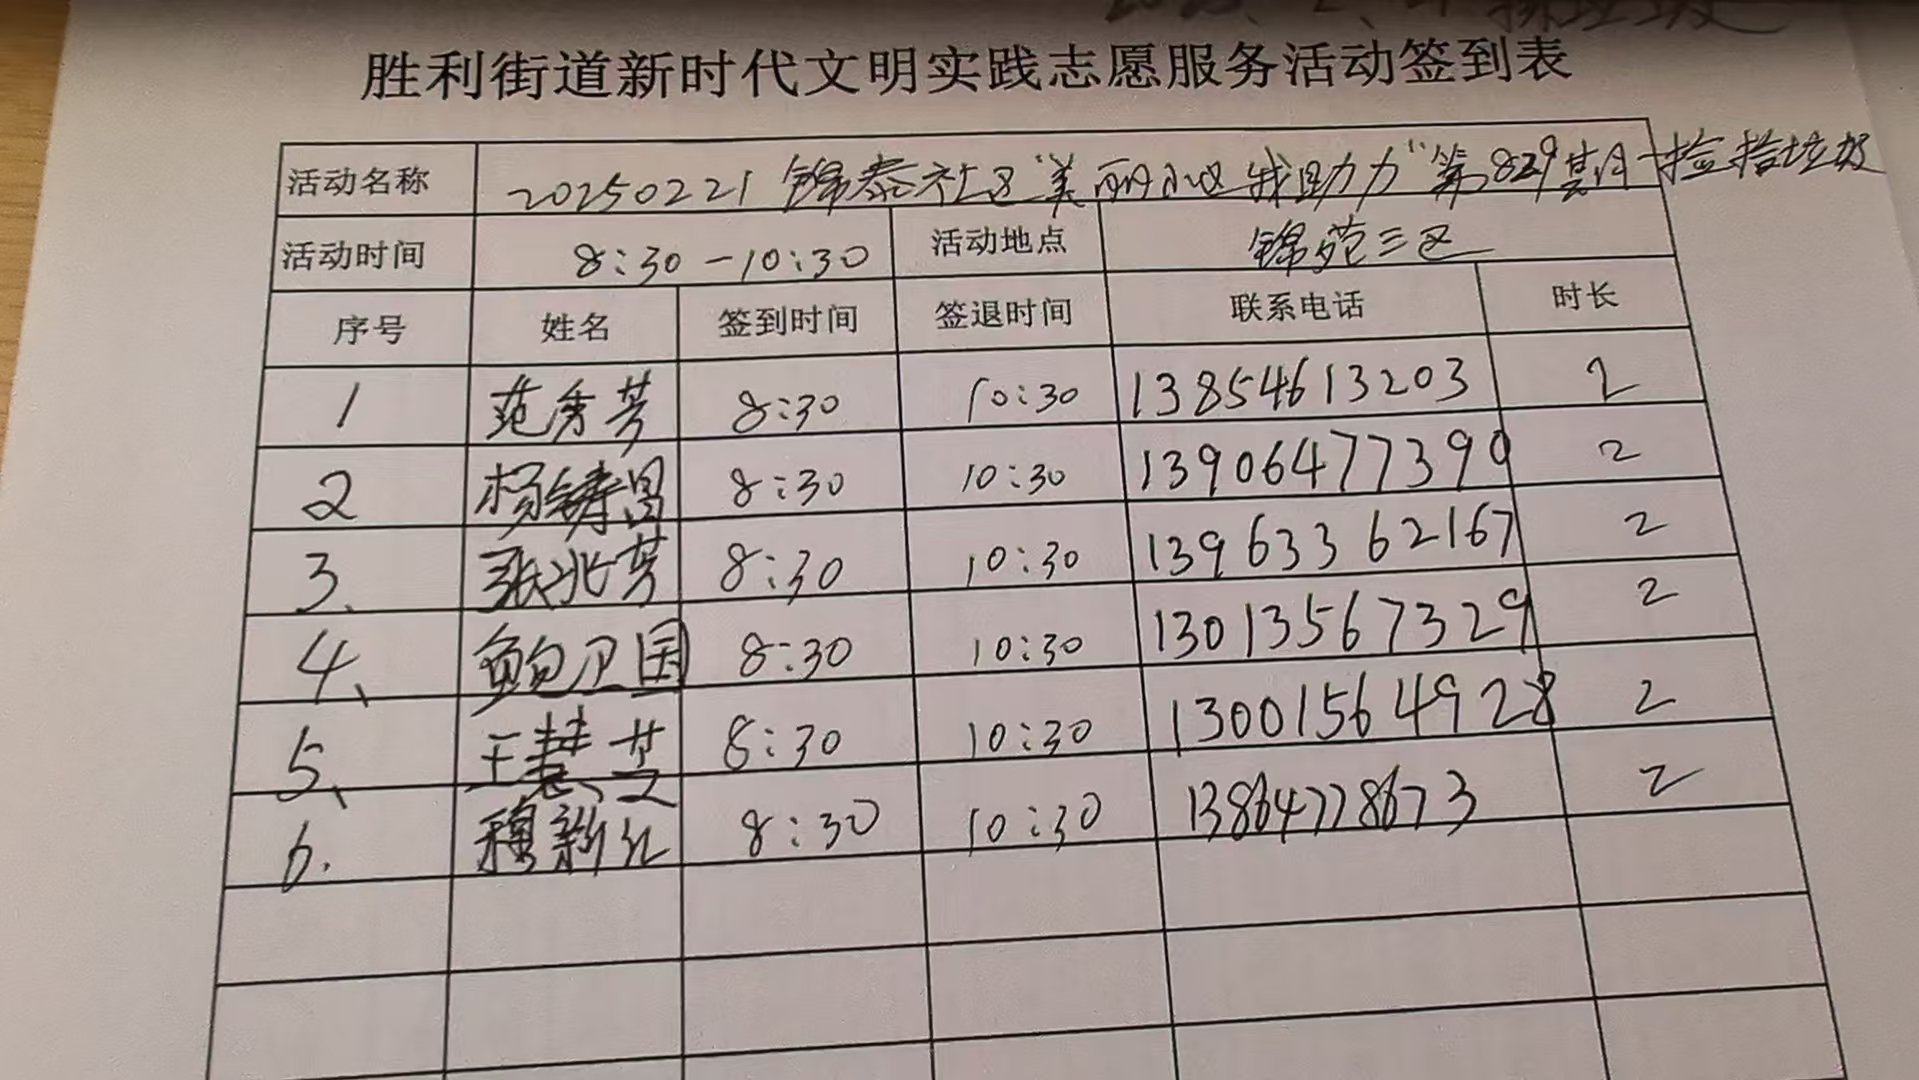 胜利街道新时代文明实践志愿服务活动签到表
活动名称 20250221 锦泰社区"美丽小区我助力"第829期 捡拾垃圾
活动时间 8:30-10:30 活动地点 锦苑三区
序号 姓名 签到时间 签退时间 联系电话 时长
1 范秀芳 8:30 10:30 13854613203 2
2 杨铸昌 8:30 10:30 13906477390 2
3、 张兆芳 8:30 10:30 13963362167 2
4、 鲍卫国 8:30 10:30 13013567329 2
5、 王慧芝 8:30 10:30 13001564928 2
6. 穆新 8:30 10:30 13864778673 2